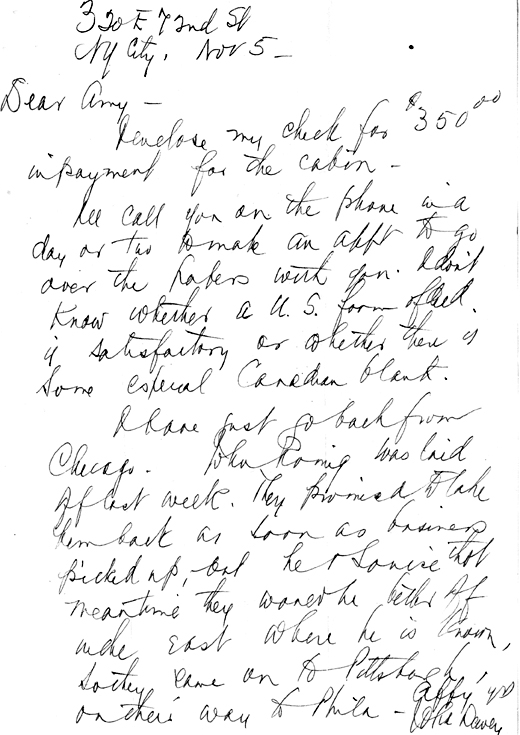 320 E 72nd St
NY City. Nov 5 -
Dear Amy -
I enclose my check for $350.00
in payment for the cabin -
I'll call you on the phone in a
day or two to make an appt to go
over the papers with you. I don't
know whether a U. S. form of deed
is satisfactory or whether there is
some especial Canadian blank.
I have just go back from
Chicago. John was laid
off last week. They promised to take
him back as soon as business
picked up, but he & Louise thot
meantime they would be better off
in the East where he is known,
so they came on to Pittsburgh,
on their way to Phila -
Affy yrs